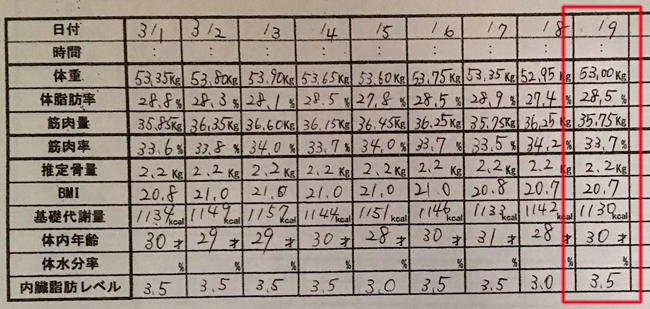 日付 3/1 3/2 /3 /4 /5 /6 /7 /8 /9
時間 : : : : : : : : :
体重 53.35Kg 53.80Kg 53.90Kg 53.65Kg 53.60Kg 53.75Kg 53.35Kg 52.95Kg 53.00Kg
体脂肪率 28.8% 28.3% 28.1% 28.5% 27.8% 28.5% 28.9% 27.4% 28.5%
筋肉量 35.85Kg 36.35Kg 36.60Kg 36.15Kg 36.45Kg 36.25Kg 35.75Kg 36.25Kg 35.75Kg
筋肉率 33.6% 33.8% 34.0% 33.7% 34.0% 33.7% 33.5% 34.2% 33.7%
推定骨量 2.2Kg 2.2Kg 2.2Kg 2.2Kg 2.2Kg 2.2Kg 2.2Kg 2.2Kg 2.2Kg
BMI 20.8 21.0 21.0 21.0 21.0 21.0 20.8 20.7 20.7
基礎代謝量 1134kcal 1149kcal 1157kcal 1144kcal 1151kcal 1146kcal 1133kcal 1142kcal 1130kcal
体内年齢 30才 29才 29才 30才 28才 30才 31才 28才 30才
体水分率 % % % % % % % % %
内臓脂肪レベル 3.5 3.5 3.5 3.5 3.0 3.5 3.5 3.0 3.5